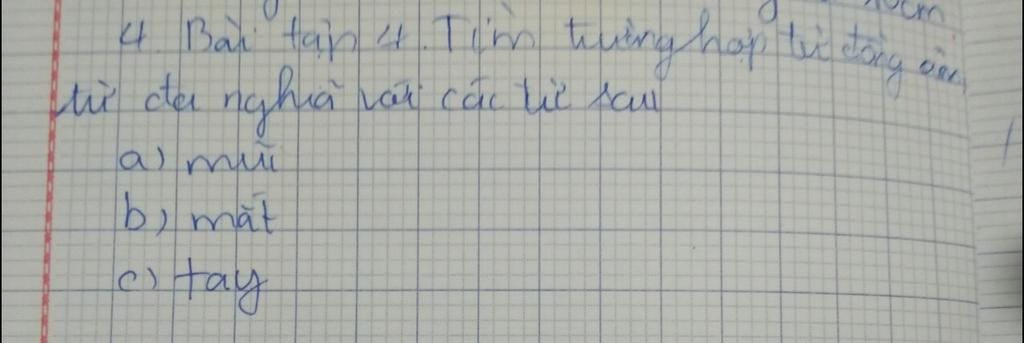 4. Bài tập 4. Tìm trường hợp từ đồng âm,
từ đa nghĩa với các từ sau
a) mũi
b) mắt
c) tay